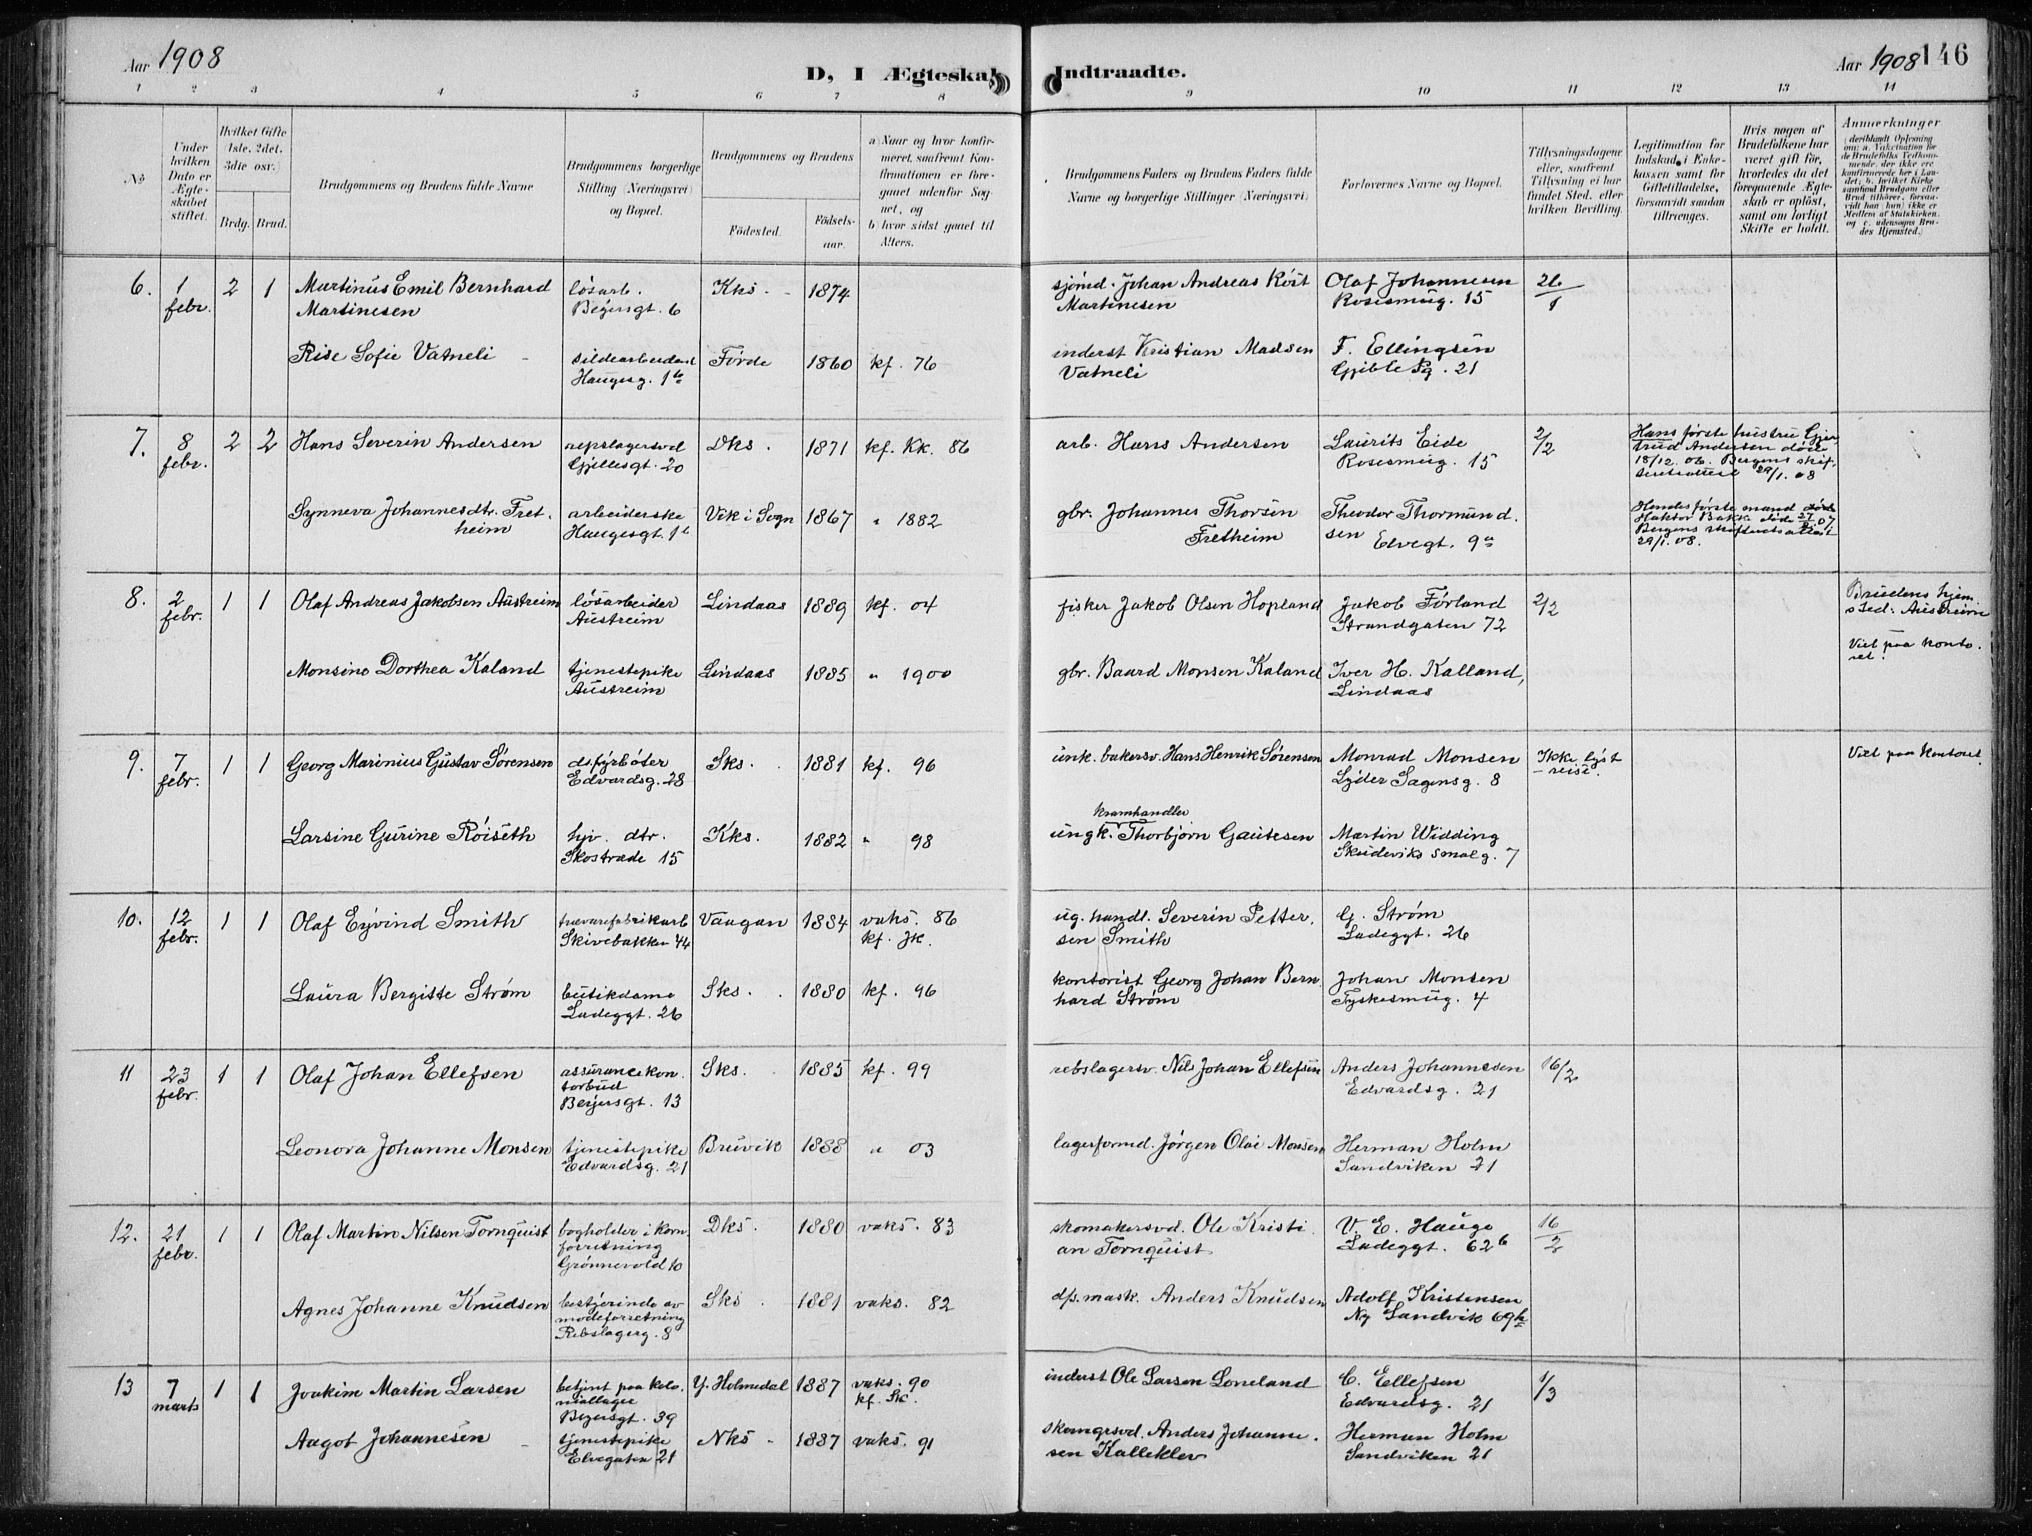 Aar 1908
D, I Ægteskab Indtraadte.
Aar 1908 146
1 2 3 4 5 6 7 8 9 10 11 12 13 14
No
Under hvilken Dato er Ægteskabet stiftet.
Hvilket Gifte (1ste, 2det, 3die osv.)
Brdg. Brud.
Brudgommens og Brudens fulde Navne
Brudgommens borgerlige Stilling (Næringsvei) og Bopæl.
Brudgommens og Brudens
Fødested.
Fødselsaar.
a) Naar og hvor konfirmeret, saafremt Konfirmationen er foregaaet udenfor Sognet, og
b) hvor sidst gaaet til Alters.
Brudgommens Faders og Brudens Faders fulde Navne og borgerlige Stillinger (Næringsvei)
Forlovernes Navne og Bopæl.
Tillysningsdagene eller, saafremt Tillysning ei har fundet Sted, efter hvilken Bevilling.
Legitimation for Indskud i Enkekassen samt for Giftetilladelse, forsaavidt saadan tiltrænges.
Hvis nogen af Brudefolkene har været gift før, hvorledes da det foregaaende Ægteskab er opløst, samt om lovligt Skifte er holdt.
Anmærkninger
(deriblandt Oplysning om: a. Vakcination for de Brudefolks Vedkommende, der ikke ere konfirmerede her i Landet; b. hvilket Kirkesamfund Brudgom eller Brud tilhører, forsaavidt han (hun) ikke er Medlem af Statskirken, og c. udensogns Brudes Hjemsted.)
6. 1 febr. 2 1 Martinus Emil Bernhard Martinesen
løsarb. Beyersgt. 6
Kks. 1874
sjømd. Johan Andreas Kóst Martinesen
Olaf Johannesen Rosesmug. 15
26/1
Rise Sofie Vatneli
sildearbeidersk Haugeg. 1b
Førde 1860 kf. 76
inderst Kristian Madsen Vatneli
F. Ellingsen Gjible Sg. 21
7. 8 febr. 2 2 Hans Severin Andersen
repslagersvd Gjillesgt. 20
Dks. 1871 kf. Kk. 86
arb. Hans Andersen
Laurits Eide Rosesmug. 15
2/2
Hans første hustru Gjertrud Andersen døde 18/12. 06. Bergens skifteretsattest 29/1. 08
Synneva Johannesdtr. Fretheim
arbeiderske Haugesgt. 1b
Vik i Sogn 1867 " 1882
gbr. Johannes Thorsen Fretheim
Theodor Thormundsen Elvegt. 9a
Hendes første mand Haktor Bakke døde 07 Bergens skifteretsattest 29/1. 08.
8. 2 febr. 1 1 Olaf Andreas Jakobsen Austreim
løsarbeider Austreim
Lindaas 1889 kf. 04
fisker Jakob Olsen Hopland
Jakob Førland Strandgaten 72
2/2
Brudens hjemsted: Austreim
Monsine Dorthea Kaland
tjenestepike Austreim
Lindaas 1885 " 1900
gbr. Baard Monsen Kaland
Iver H. Kalland, Lindaas
Viet paa kontoret.
9. 7 febr. 1 1 Georg Marinius Gustav Sørensen
d.fyrbøter Edvardsg. 28
Sks. 1881 kf. 96
unk. bakersv. Hans Henrik Sørensen
Monrad Monsen Lyder Sagensg. 8
Ikke lyst - reist.
Viet paa kontoret.
Larsine Gurine Røiseth
hjv. dtr. Skostræde 15
Kks. 1882 " 98
ungk. kramhandler Thorbjørn Gautesen
Martin Widding Skudeviks smalg. 7
10. 12 febr. 1 1 Olaf Eyvind Smith
trævarefabrikarb Skivebakken 44
Vaagan 1884 vaks. 86 kf. Jk.
ug. handl. Severin Pettersen Smith
G. Strøm Ladeggt. 26
Laura Bergitte Strøm
butikdame Ladeggt. 26
Sks. 1880 kf. 96
kontorist Georg Johan Bernhard Strøm
Johan Monsen Tyskesmug. 4
11 23 febr. 1 1 Olaf Johan Ellefsen
assurancekontorbud Beyersgt. 13
Sks. 1885 kf. 99
rebslagersv. Nils Johan Ellefsen
Anders Johannesen Edvardsg. 21
16/2
Leonora Johanne Monsen
tjenestepike Edvardsg. 21
Bruvik 1888 " 03
lagerformd. Jørgen Olai Monsen
Herman Holm Sandviken 21
12. 21 febr. 1 1 Olaf Martin Nilsen Tornquist
bogholder i kornforretning Grønnevold 10
Dks. 1880 vaks. 83
skomakersvd. Ole Kristian Tornquist
V. E. Hauge Ladeggt. 62b
16/2
Agnes Johanne Knudsen
bestjerinde av modeforretning Rebslagerg. 8
Sks. 1881 vaks. 82
d/s. mask. Anders Knudsen
Adolf Kristensen Ny Sandvik 69b
13 7 marts 1 1 Joakim Martin Larsen
betjent paa kolonial­lager Beyersgt. 39
Y. Holmedal 1887 vaks. 90 kf. Sk.
inderst Ole Larsen Loneland
C. Ellefsen Edvardsg. 21
1/3
Aagot Johannesen
tjenestepike Elvegaten 21
Nks 1887 vaks. 91
skomgrsvd. Anders Johannesen Kalleklev
Herman Holm Sandviken 21